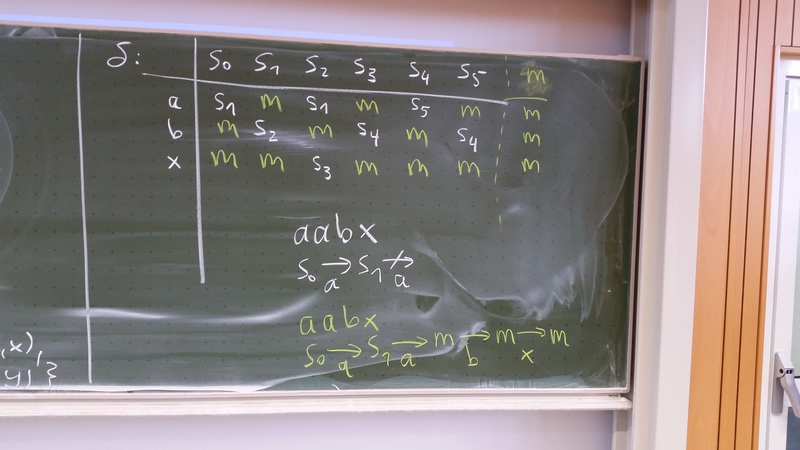 δ: S₀ S₁ S₂ S₃ S₄ S₅ m
a S₁ m S₁ m S₅ m m
b m S₂ m S₄ m S₄ m
x m m S₃ m m m m
aabx
S₀ →a S₁ ↛a
aabx
S₀ →a S₁ →a m →b m →x m
,x),
y), }